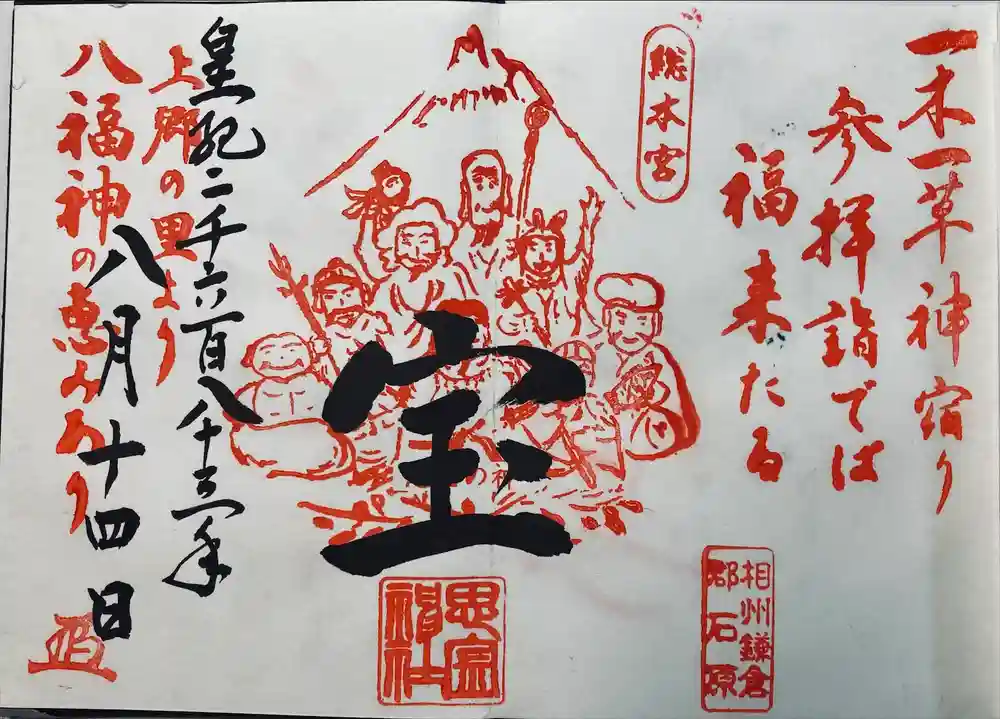 一木一草神宿り
参拝詣では
福来たる
総本宮
相州鎌倉
郡石原
宝
思金
神社
皇紀二千六百八十三年
八月十四日
上郷の里より
八福神の恵みあり